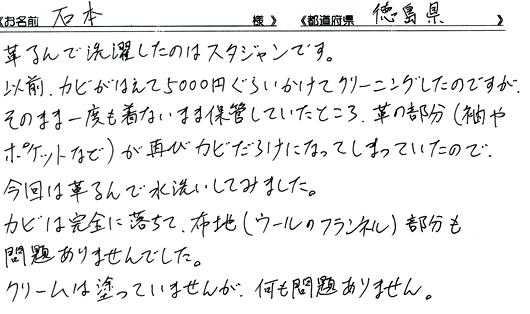 《お名前 石本 様》《都道府県 徳島県 》
革るんで洗濯したのはスタジャンです。
以前、カビがはえて5000円ぐらいかけてクリーニングしたのですが、
そのまま一度も着ないまま保管していたところ、革の部分(袖や
ポケットなど)が再びカビだらけになってしまっていたので、
今回は革るんで水洗いしてみました。
カビは完全に落ちて、布地(ウールのフランネル)部分も
問題ありませんでした。
クリームは塗っていませんが、何も問題ありません。